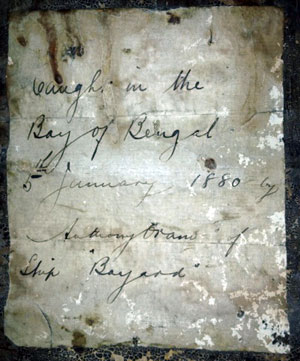 Caught in the
Bay of Bengal
5th January 1880 by
Anthony Evans of
Ship "Bayard"